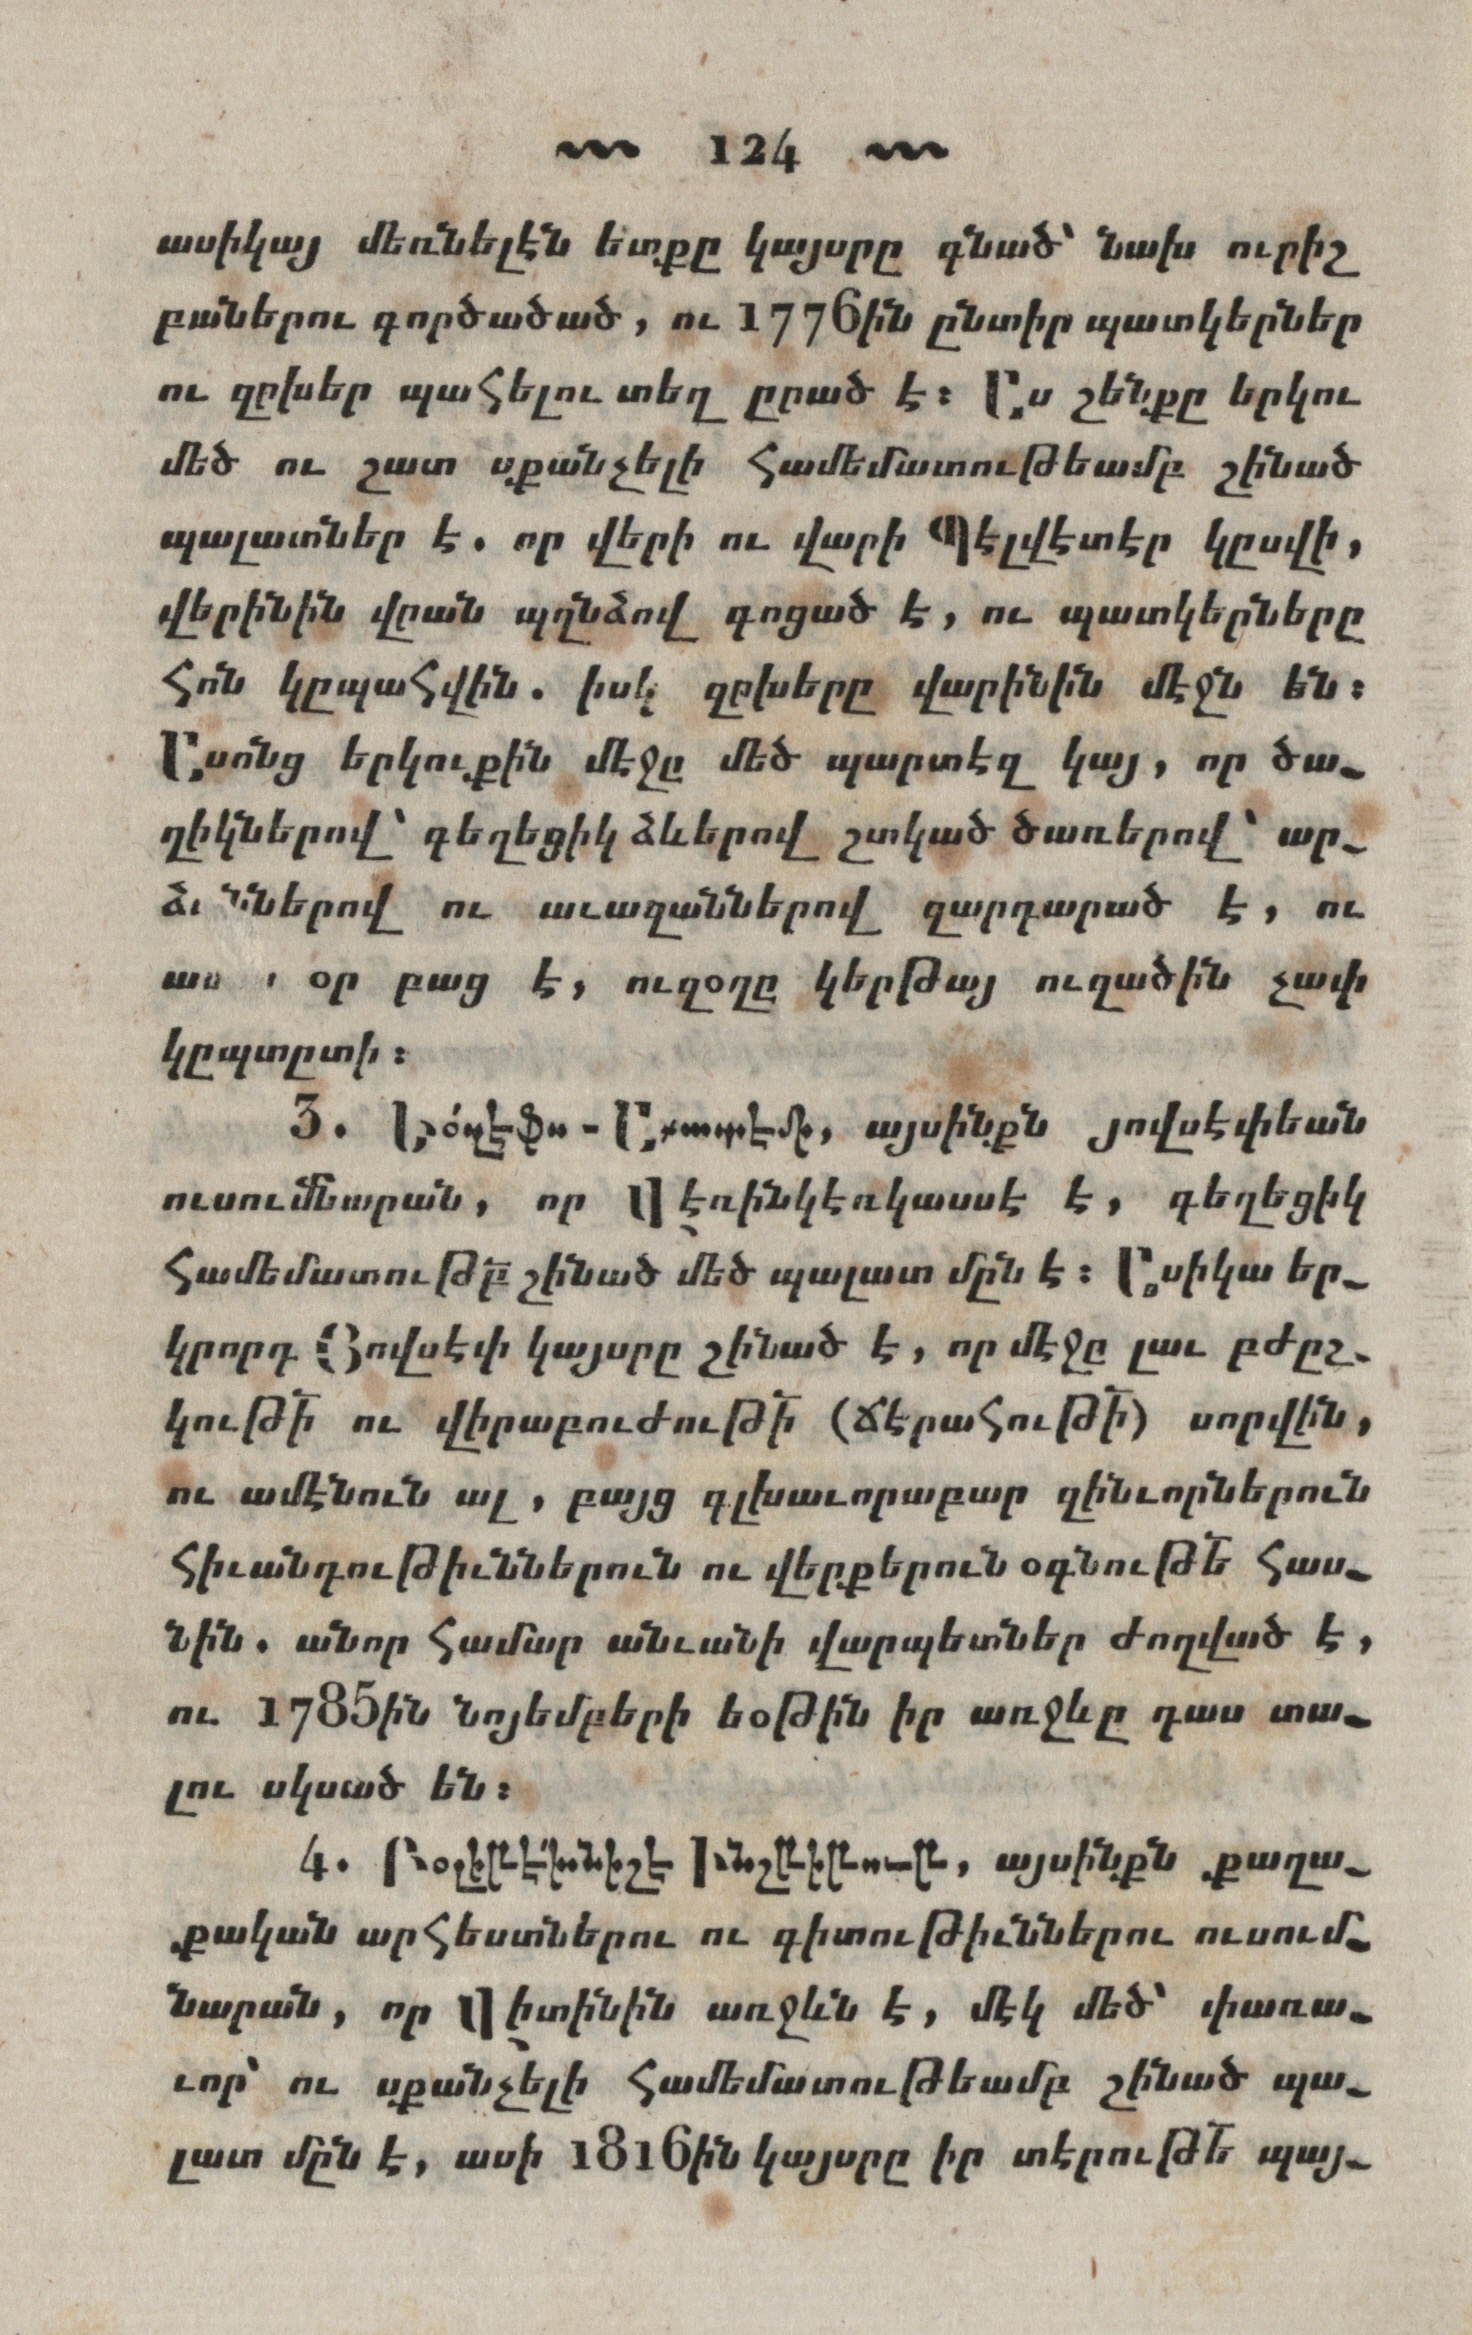 124
ասիկայ մեռնելէն ետքը կայսրը գնած՝ նախ ուրիշ
բաներու գործածած, ու 1776ին ընտիր պատկերներ
ու զըխեր պահելու տեղ ըրած է։ Աս շենքը երկու
մեծ ու շատ սքանչելի համեմատութեամբ շինած
պալատներ է. որ վերի ու վարի Պէլվէտէր կըսվի,
վերինին վրան պղնձով գոցած է, ու պատկերները
հոն կըպահվին. իսկ զըխերը վարինին մէջն են։
Ասոնց երկուքին մէջը մեծ պարտէզ կայ, որ ծա-
ղիկներով՝ գեղեցիկ ձևերով շտկած ծառերով՝ ար-
ու աւազաններով զարդարած է, ու
օր բաց է, ուզօղը կերթայ ուզածին չափ
կըպտըտի։
3. այսինքն յովսէփեան
ուսումնարան, որ Վէռինկէռկասսէ է, գեղեցիկ
համեմատութբ շինած մեծ պալատ մըն է։ Ասիկա եր-
կրորդ Յովսէփ կայսրը շինած է, որ մէջը լաւ բժըշ-
կուի ու վիրաբուժուի (ճէրահուի) սորվին,
ու ամէնուն ալ, բայց գլխաւորաբար զինւորներուն
հիւանդութիւններուն ու վերքերուն օգնութե հաս-
նին. անոր համար անւանի վարպետներ ժողված է,
ու 1785ին նոյեմբերի եօթին իր առջևը դաս տա-
լու սկսած են։
4. այսինքն քաղա-
քական արհեստներու ու գիտութիւններու ուսում-
նարան, որ Վիտինին առջևն է, մէկ մեծ՝ փառա-
ւոր՝ ու սքանչելի համեմատութեամբ շինած պա-
լատ մըն է, ասի 1816ին կայսրը իր տէրութե պայ-